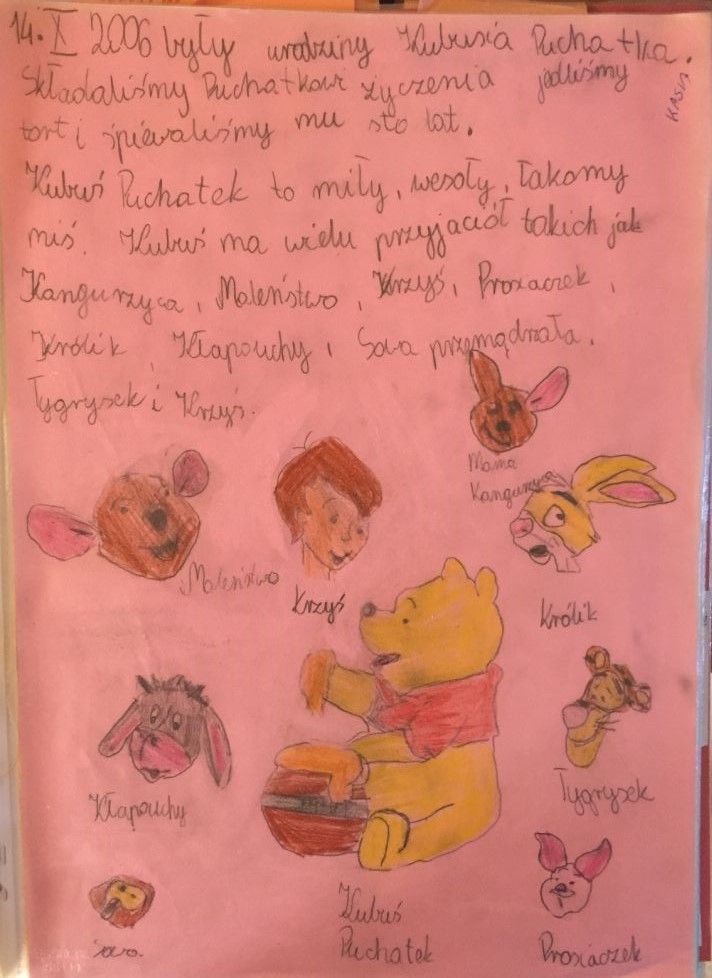 14. X 2006 były urodziny Kubusia Puchatka.
Składaliśmy Puchatkowi życzenia jedliśmy
tort i śpiewaliśmy mu sto lat.
Kubuś Puchatek to miły, wesoły, łakomy
miś. Kubuś ma wielu przyjaciół takich jak
Kangurzyca, Maleństwo, Krzyś, Prosiaczek,
Królik, Kłapouchy, Sowa przemądrzała.
Tygrysek i Krzyś.
KASIA
Mama
Kangurzyca
Maleństwo
Krzyś
Królik
Kłapouchy
Tygrysek
Sowa.
Kubuś
Puchatek
Prosiaczek